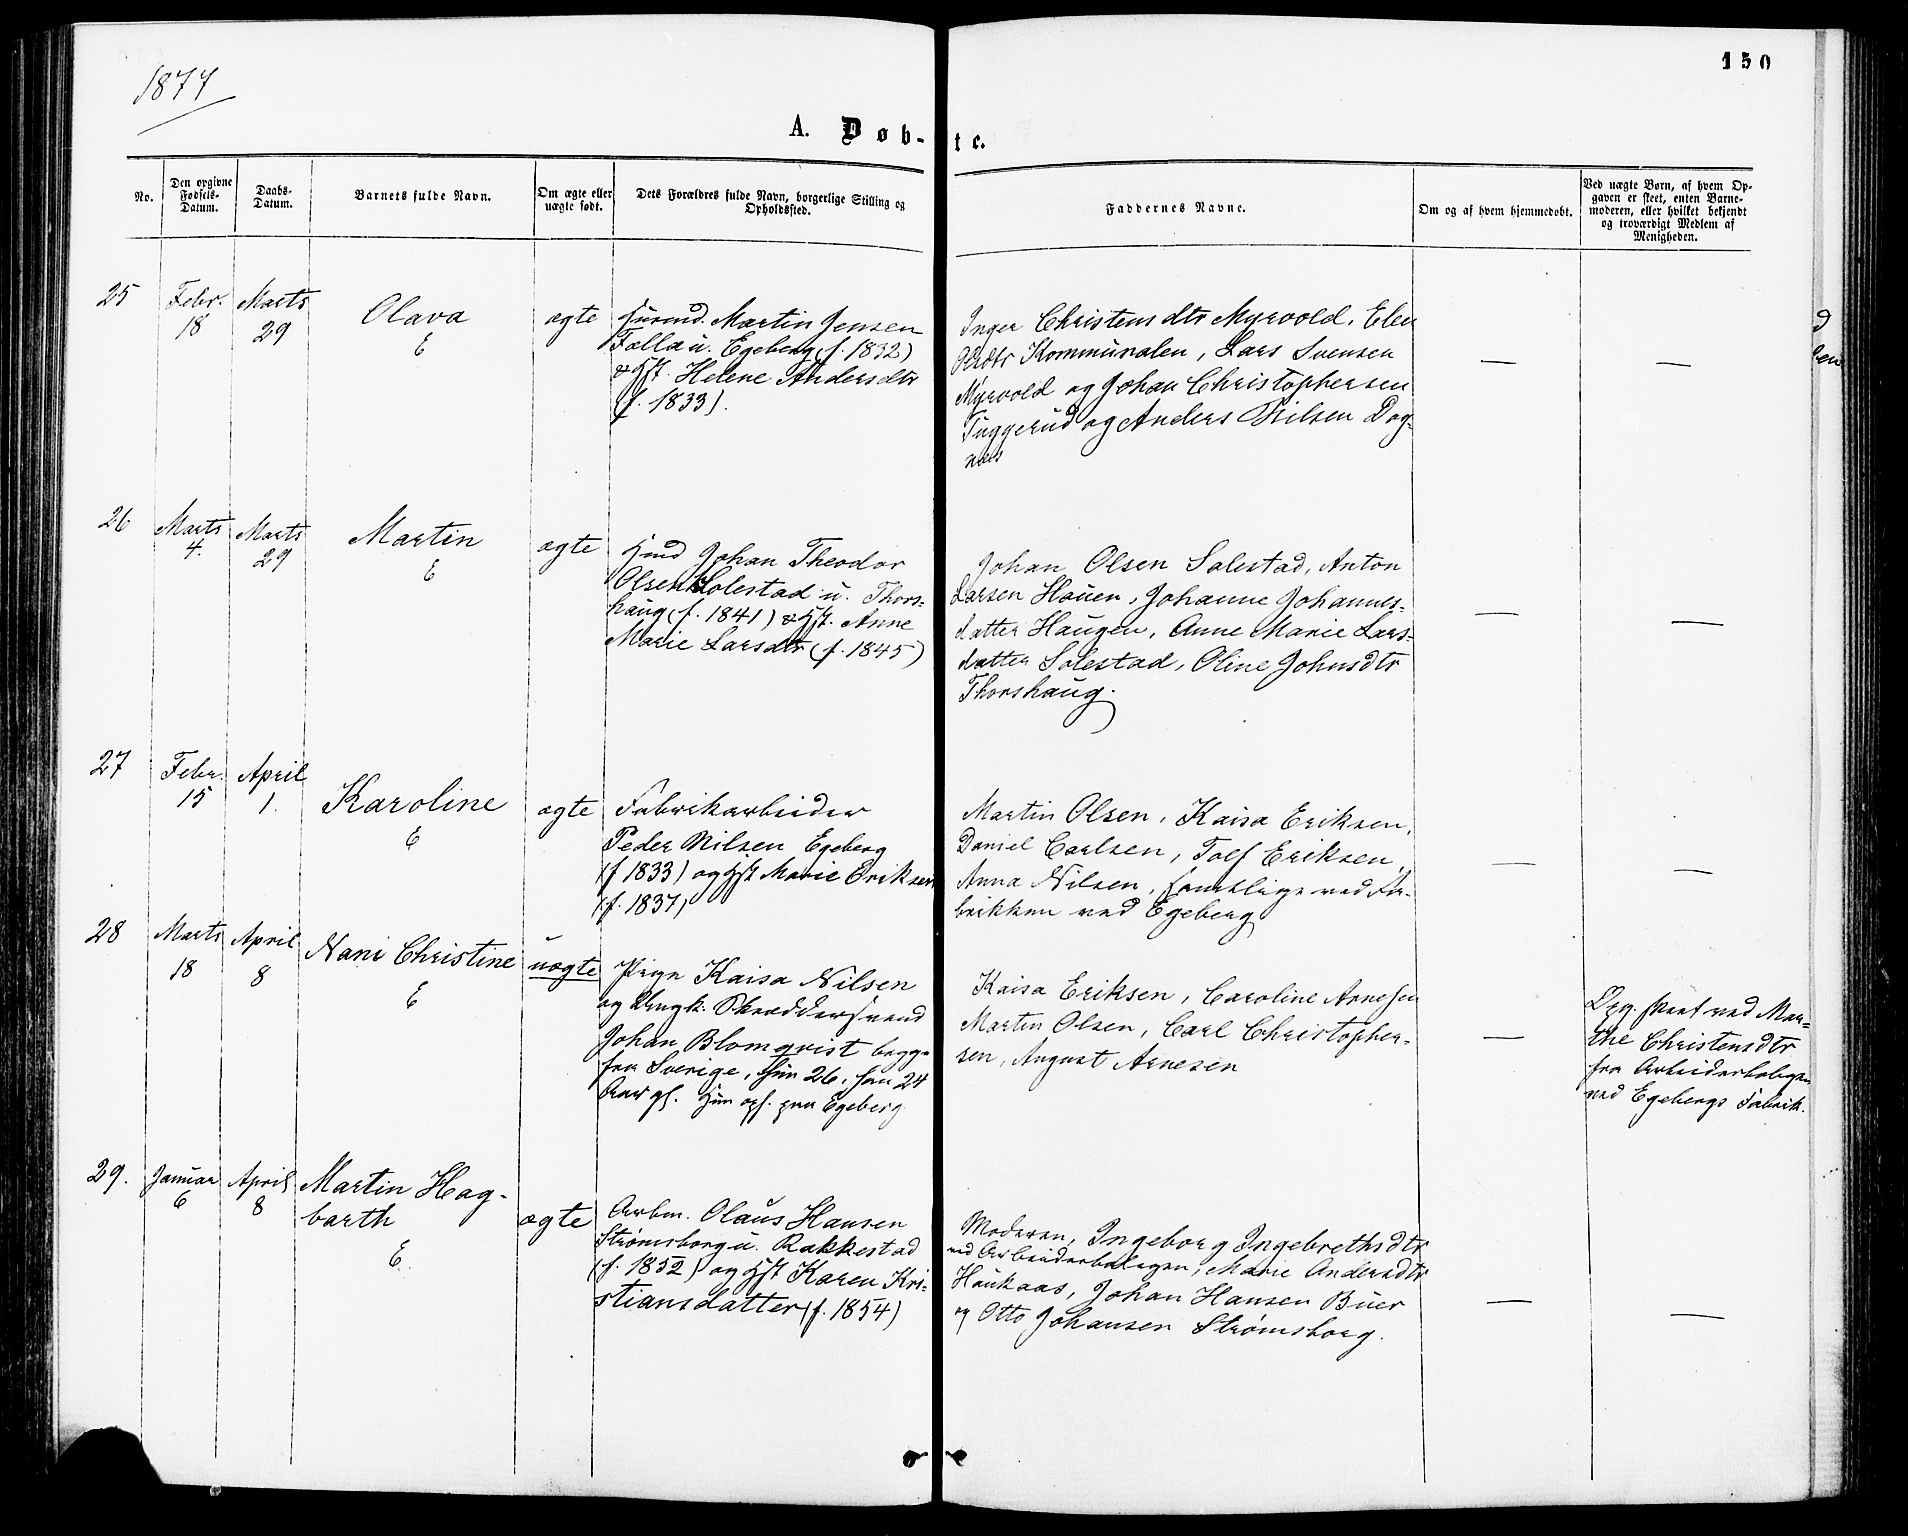 1877
150
A. Døb-
te.
No.
Den opgivne
Fødsels-
Datum.
Daabs-
Datum.
Barnets fulde Navn.
Om ægte eller
uægte født.
Dets Forældres fulde Navn, borgerlige Stilling og
Opholdssted.
Faddernes Navne.
Om og af hvem hjemmedøbt.
Ved uægte Børn, af hvem Op-
gaven er skeet, enten Barne-
moderen, eller hvilket bekjendt
og troværdigt Medlem af
Menigheden.
25
Febr.
18
Marts
29
Olava
E
ægte
Martin Jensen
u. Egeberg (f. 1832)
& Hst. Helene Andersdtr
(f. 1833).
Inger Christensdtr Myrvold, Elen
Kommunalen, Lars Svensen
Myrvold og Johan Christophersen
Tuggerud og Anders Nilsen Dog-
næs
—
—
26
Marts
4.
Marts
29
Martin
E
ægte
Hmd Johan Theodor
Olsen Solestad u. Thors-
haug (f. 1841) & Hst. Anne
Marie Larsdtr (f. 1845)
Johan Olsen Solestad, Anton
Larsen Hauen, Johanne Johannes-
datter Haugen, Anne Marie Lars-
datter Solestad, Oline Johnsdtr
Thorshaug.
—
—
27
Febr.
15
April
1.
Karoline
E
ægte
Fabrikarbeider
Peder Nilsen Egeberg
(f 1833) og Hst Marie Eriksen
(f. 1837)
Martin Olsen, Kaisa Eriksen,
Daniel Carlsen, Tolf Eriksen,
Anna Nilsen, samtlige ved Fa-
brikken ved Egeberg
—
—
28
Marts
18
April
8
Nani Christine
E
uægte
Pige Kaisa Nilsen
og Ungk. Skræddersvend
Johan Blomqvist begge
fra Sverige, hun 26, han 24
Aar gl. Hun oph. paa Egeberg
Kaisa Eriksen, Caroline Arnesen
Martin Olsen, Carl Christopher-
sen, August Arnesen
—
Opg. skeet ved Mar-
the Christensdtr
fra Arbeiderboligen
ved Egebergs Fabrik.
29.
Januar
6
April
8
Martin Hag-
barth
E
ægte
Arbm. Olaus Hansen
Strømsborg u. Rakkestad
(f. 1852) og Hst Karen Kri-
stiansdatter (f. 1854)
Moderen, Ingeborg Ingebrethsdtr
ved Arbeiderboligen, Marie Andersdtr
Haukaas, Johan Hansen Buer
og Otto Johansen Strømsborg.
—
—